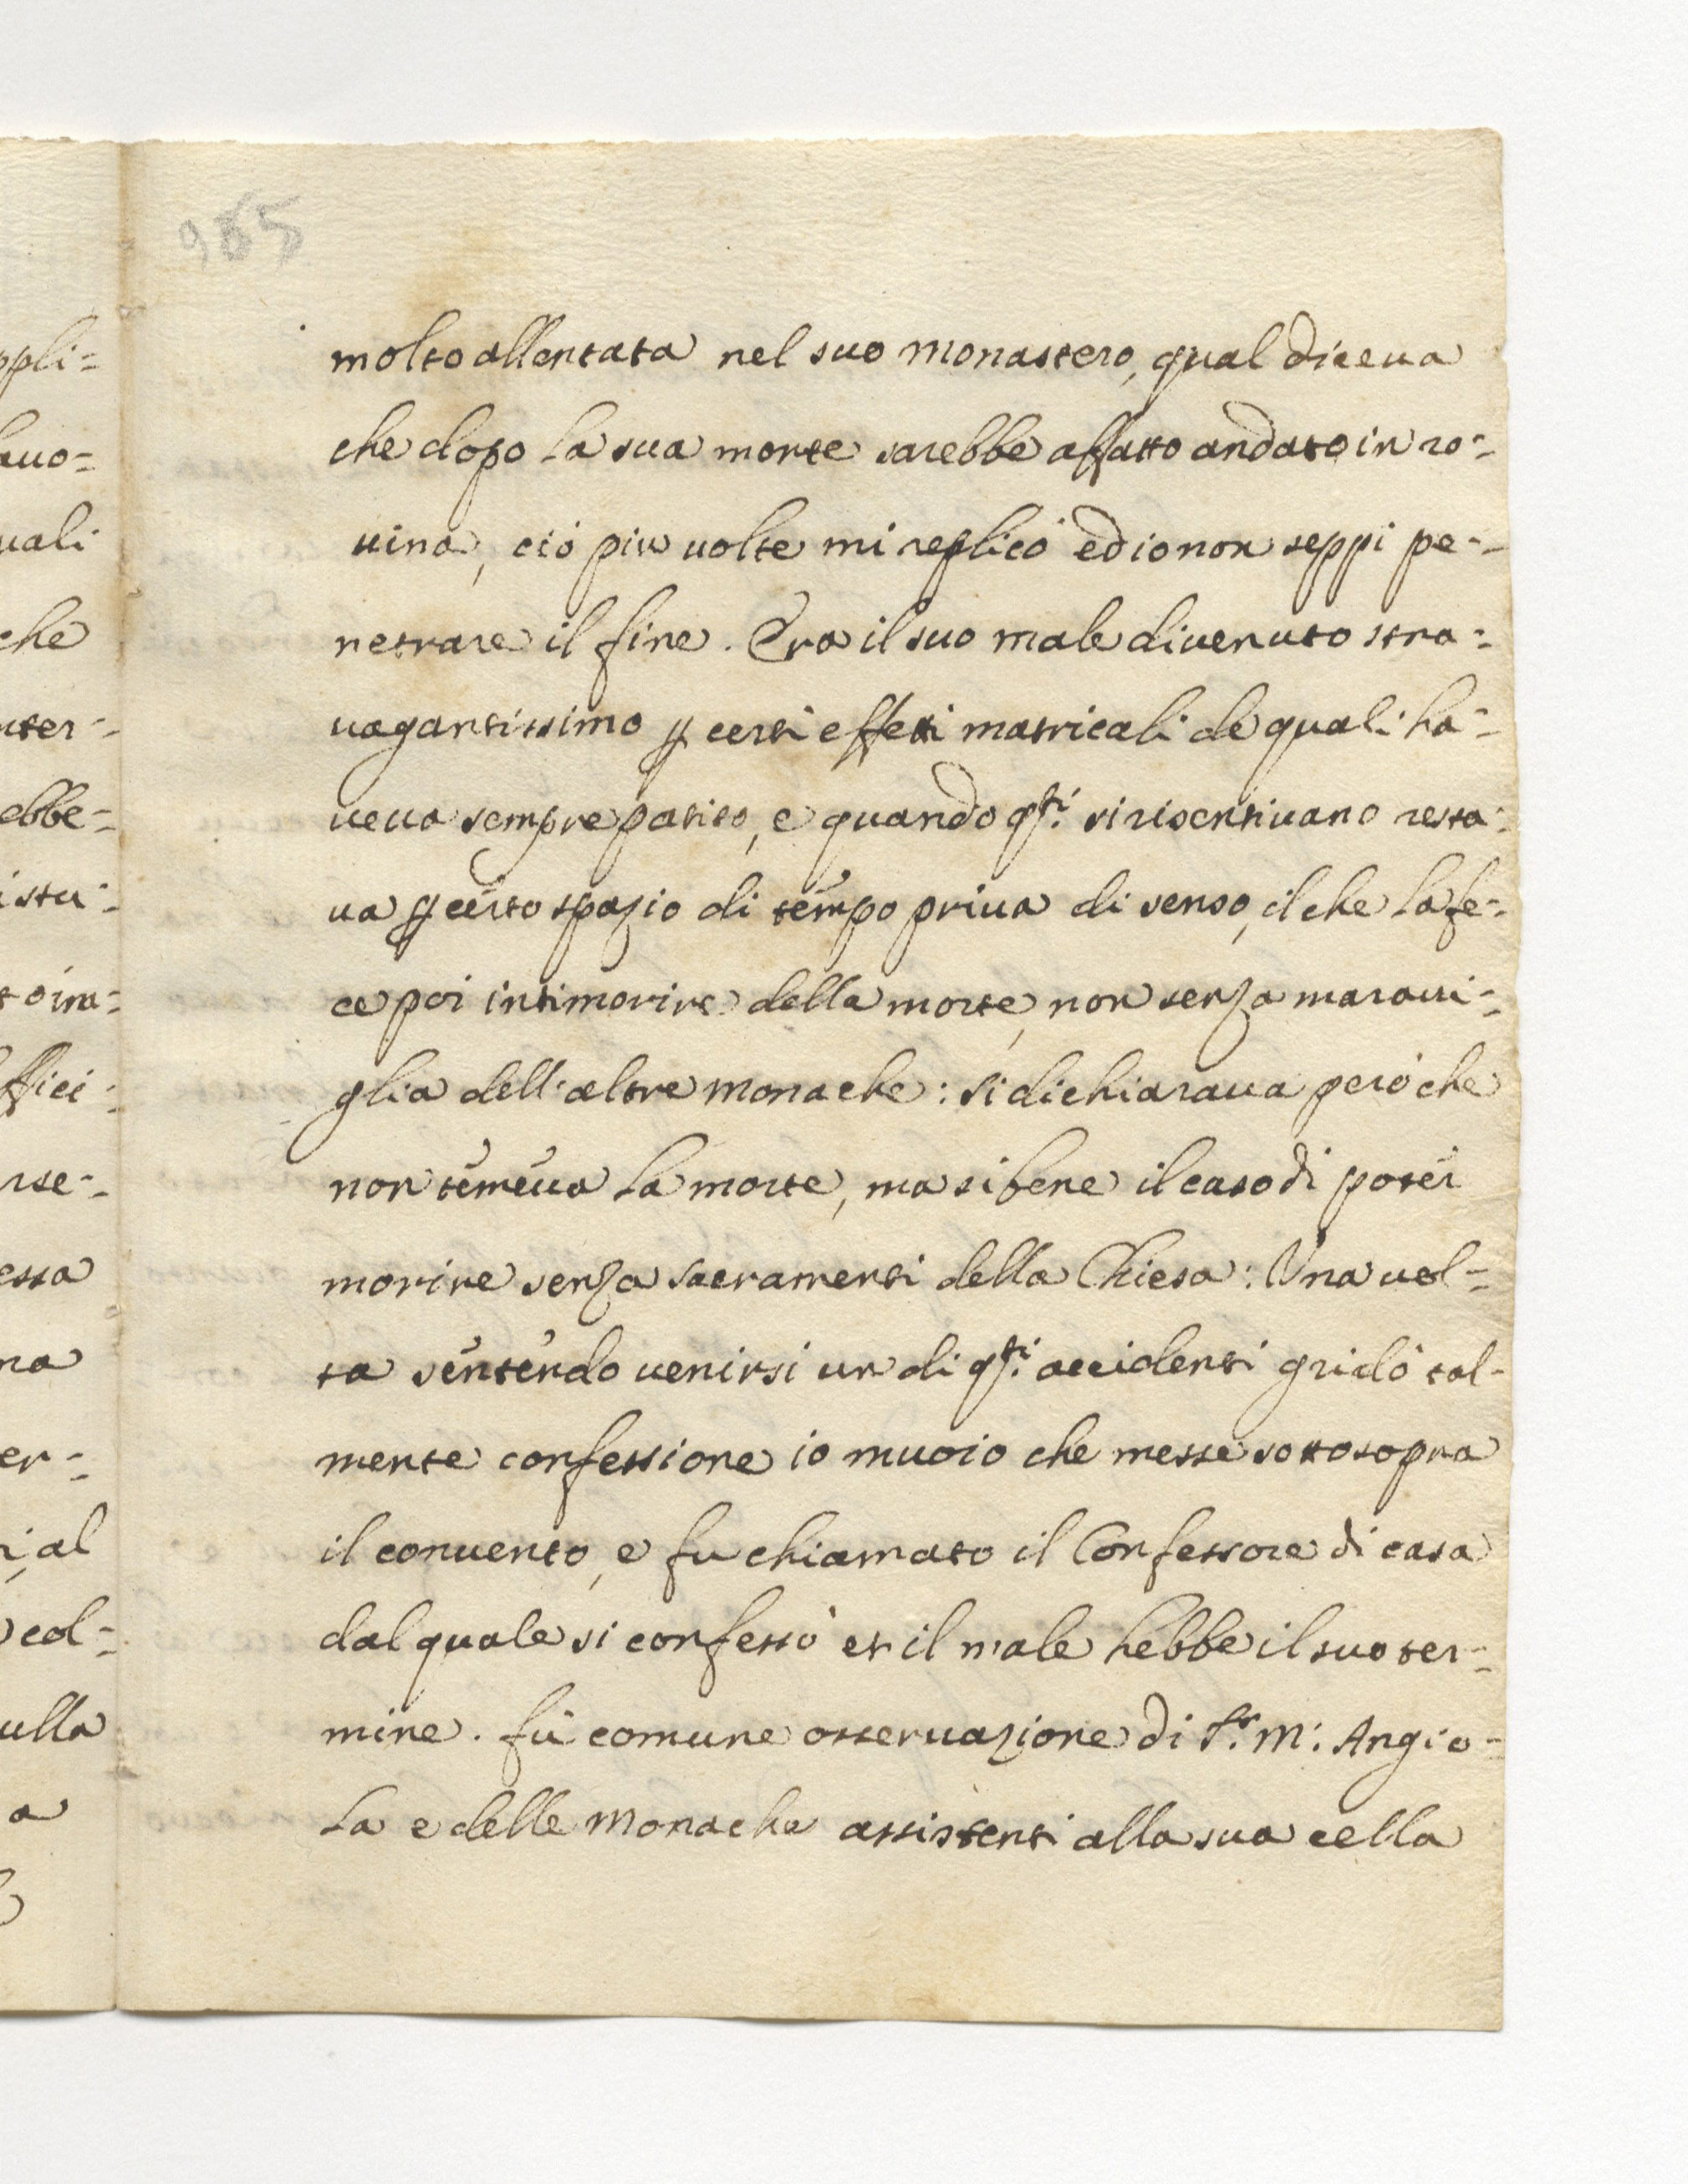 985
molto allentata nel suo monastero, qual diceua
che dopo la sua morte sarebbe affatto andato in ro=
uina, ciò piu uolte mi replicò ed io non seppi pe=
netrare il fine. Era il suo male diuenuto stra=
uagantissimo ꝑ certi effetti matricali de quali ha=
ueua sempre patito, e quando qsti. si risentiuano resta=
ua ꝑ certo spazio di tempo priua di senso, il che la fe=
ce poi intimorire della morte, non senza maraui=
glia dell'altre monache: si dichiaraua però che
non temeua la morte, ma si bene il caso di poter
morire senza sacramenti della Chiesa: Una uol=
ta sentendo uenirsi un di qsti. accidenti gridò tal-
mente confessione io muoio che messe sottosopra
il conuento, e fu chiamato il Confessore di casa
dal quale si confessò et il male hebbe il suo ter=
mine. fù comune osseruazione di Sr. M: Angio=
la e delle Monache assistenti alla sua cella
ppli=
auo=
uali
che
nter=
ebbe=
istu=
ffici=
rse=
essa
na
er=
al
col=
ulla
a